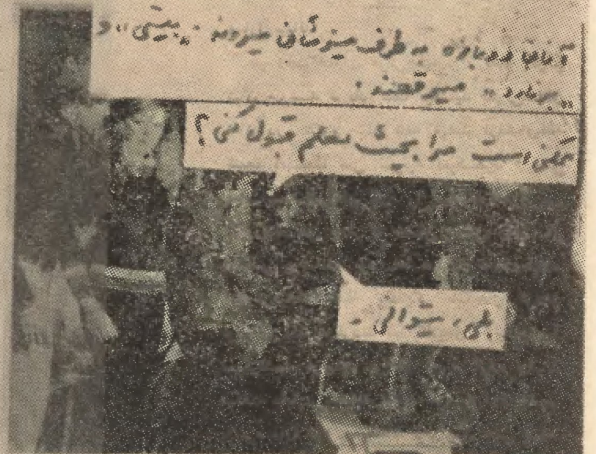 آنان دوباره به طرف میزشان میروند. "بیتی" و
"برنارد" میرقصند.
ممکن است مرا بحیث معلم قبول کنی؟
بلی، میتوانی.